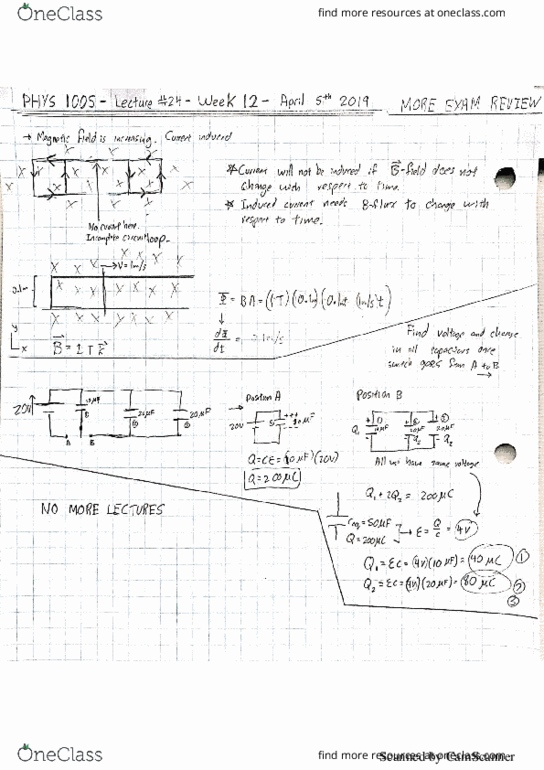 OneClass
find more resources at oneclass.com
PHYS 1005 - Lecture #24 - Week 12 - April 5th 2019
MORE EXAM REVIEW
→ Magnetic field is increasing. Current induced
* Current will not be induced if B-field does not
change with respect to time.
* Induced current needs B-flux to change with
respect to time.
No current here.
Incomplete circuit loop.
→ V = 1m/s
0.1m
B = 1 T k
y
x
Φ = BA = (1T)(0.1m)
dΦ
dt
Find voltage and charge
in all capacitors once
switch goes from A to B
20V
10μF
20μF
20μF
A
B
→ Position A
20V
10μF
Q = CE = (10μF)(20V)
Q = 200μC
Position B
Q₁
10μF
20μF
20μF
Q₂
Q₂
All must have same voltage
Q₁ + 2Q₂ = 200μC
Ceq = 50μF
Q = 200μC
→ E = Q/C = 4V
Q₁ = EC = (4V)(10μF) = 40μC ①
Q₂ = EC = (4V)(20μF) = 80μC ②
③
NO MORE LECTURES
OneClass
find more resources at oneclass.com
Scanned by CamScanner